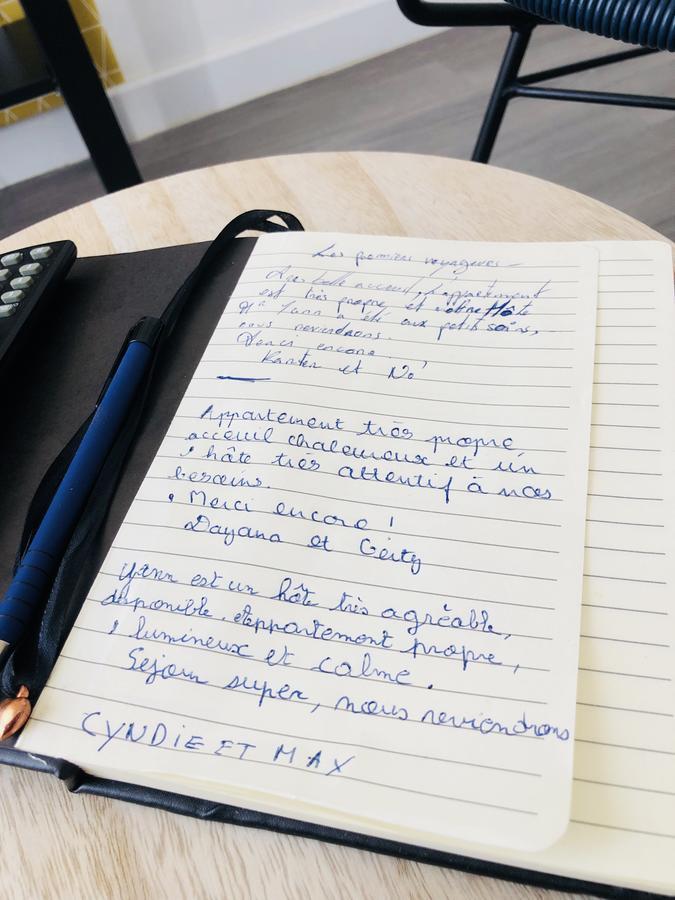 Les premiers voyageurs
bel accueil, l'appartement
est très propre et notre Hôte
Mr Yann a été aux petits soins,
nous reviendrons.
Merci encore
et No
Appartement très propre
acceuil chaleureux et un
hôte très attentif à nos
besoins.
Merci encore !
Dayana et
Yann est un hôte très agréable,
disponible. Appartement propre,
lumineux et calme.
Sejour super, nous reviendrons
CYNDiE ET MAX